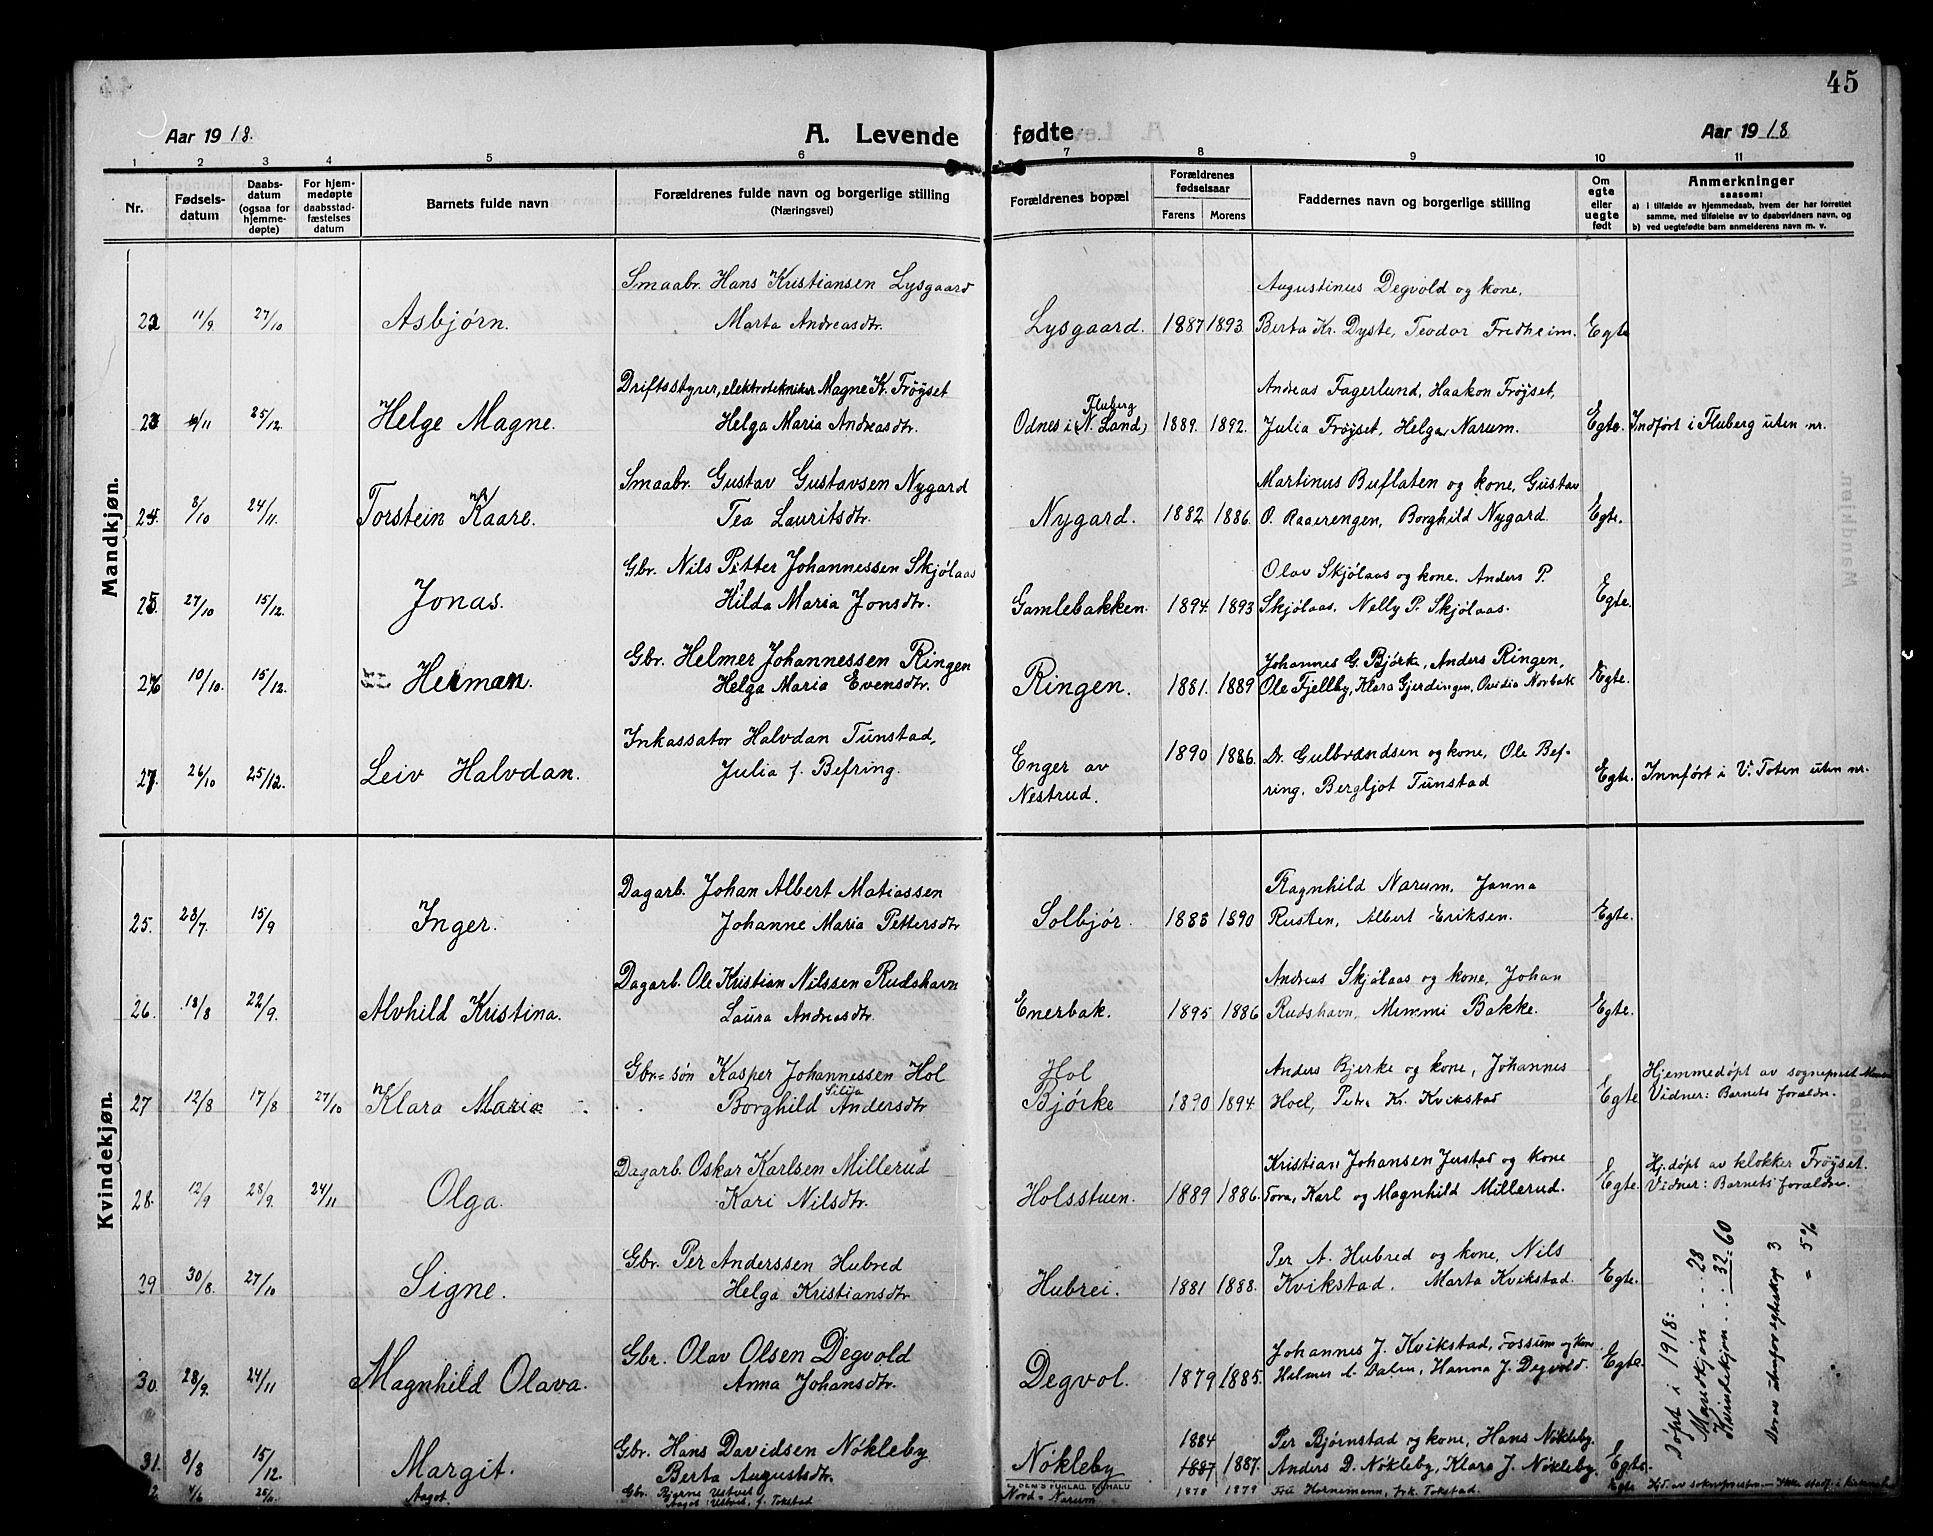 45
Aar 1918.
A. Levende fødte
Aar 1918
1 2 3 4 5 6 7 8 9 10 11
Nr.
Fødselsdatum
Daabsdatum (ogsaa for hjemmedøpte)
For hjemmedøpte daabsstadfæstelses datum
Barnets fulde navn
Forældrenes fulde navn og borgerlige stilling (Næringsvei)
Forældrenes bopæl
Forældrenes fødselsaar
Farens Morens
Faddernes navn og borgerlige stilling
Om egte eller uegte født
Anmerkninger
saasom:
a) i tilfælde av hjemmedaab, hvem der har forrettet samme, med tilføielse av to daabsvidners navn, og
b) ved uegtefødte barn anmelderens navn m. v.
Mandkjøn.
Smaabr. Hans Kristiansen Lysgaard Augustinus Degvold og kone,
22 11/9 27/10 Asbjørn. Marta Andreasdtr. Lysgaard. 1887 1893. Berta Kr. Dyste, Teodor Fredheim. Egte
Driftsstyrer, elektrotekniker Magne K. Frøyset Fluberg Andreas Fagerlund, Haakon Frøyset,
23 /11 25/12. Helge Magne. Helga Maria Andreasdtr. Odnes i (N. Land) 1889. 1892. Julia Frøyset, Helga Narum. Egte. Indført i Fluberg uten nr.
Smaabr. Gustav Gustavsen Nygard Martinus Buflaten og kone, Gustav
24. 8/10 24/11. Torstein Kaare. Tea Lauritsdtr. Nygard. 1882 1886. O. Raaerengen, Borghild Nygard. Egte.
Gbr. Nils Petter Johannessen Skjølaas Olav Skjølaas og kone, Anders P.
25. 27/10 15/12. Jonas. Hilda Maria Jonsdtr. Gamlebakken. 1894. 1893 Skjølaas, Nelly P. Skjølaas. Egte.
Gbr. Helmer Johannessen Ringen Johannes G. Bjørke, Anders Ringen,
26 10/10. 15/12. Herman. Helga Maria Evensdtr. Ringen. 1881. 1889 Ole Fjellby, Klara Gjerdingen, Ovidia Norbak Egte.
Inkassator Halvdan Tunstad, Enger av 1890 1886. Dr. Gulbrandsen og kone, Ole Bef-
27. 26/10 25/12. Leiv Halvdan. Julia f. Befring. Nestrud. ring, Bergljot Tunstad Egte. Innført i V. Toten uten nr.
Kvindekjøn.
Dagarb. Johan Albert Matiassen Ragnhild Narum, Janna
25. 23/7. 15/9 Inger. Johanne Maria Pettersdtr Solbjør. 1890 Rusten, Albert Eriksen. Egte.
Dagarb. Ole Kristian Nilssen Rudshavn Andreas Skjølaas og kone, Johan
26. 18/8 22/9. Alvhild Kristina. Laura Andreasdtr. Enerbak. 1895 1886 Rudshavn, Mimmi Bakke. Egte.
Gbr-søn Kasper Johannessen Hol Hol Anders Bjerke og kone, Johannes Hjemmedøpt av sogneprest
27 12/8 17/8 27/10 Klara Maria. Borghild Silija Andersdtr Bjørke 1890 1894. Hoel, Petra Kr. Kvikstad Egte Vidner: Barnets forældre.
Dagarb. Oskar Karlsen Millerud Kristian Johansen Jerstad og kone Hj.døpt av klokker Frøyset.
28. 12/9 28/9. 24/11 Olga. Kari Nilsdtr. Holsstuen. 1889 1886. Tora, Karl og Magnhild Millerud. Egte. Vidner: Barnets forældre.
Gbr. Per Anderssen Hubred Per A. Hubred og kone, Nils
29 30/8. 27/10 Signe. Helga Kristiansdtr Hubrei. 1881 1888. Kvikstad, Marta Kvikstad. Egte.
Gbr. Olav Olsen Degvold Johannes J. Kvikstad, Fossum og kone
30. 28/9. 24/11 Magnhild Olava. Anna Johansdtr. Degvol. 1879 1885. Dalen, Hanna J. Degvold. Egte.
Gbr. Hans Davidsen Nøkleby 1884 Per Bjørnstad og kone, Hans Nøkleby.
31. 8/8 15/12. Margit. Berta Augustsdtr. Nøkleby 1887 1887. Anders D. Nøkleby, Klara J. Nøkleby. Egte.
4/6 25/ Aagot. Gbr. Bjarne Ustvet Nord-Narum 1878 1879 Fru Hornemann, frk. Tokstad. Egte Hjd. av soknepresten
Aagot Ustvet, f. Tokstad
Døpt i 1918:
Mandkjøn ... 28
Kvindekjøn ... 32 = 60
Derav utenfor egteskap 3
= 5 %